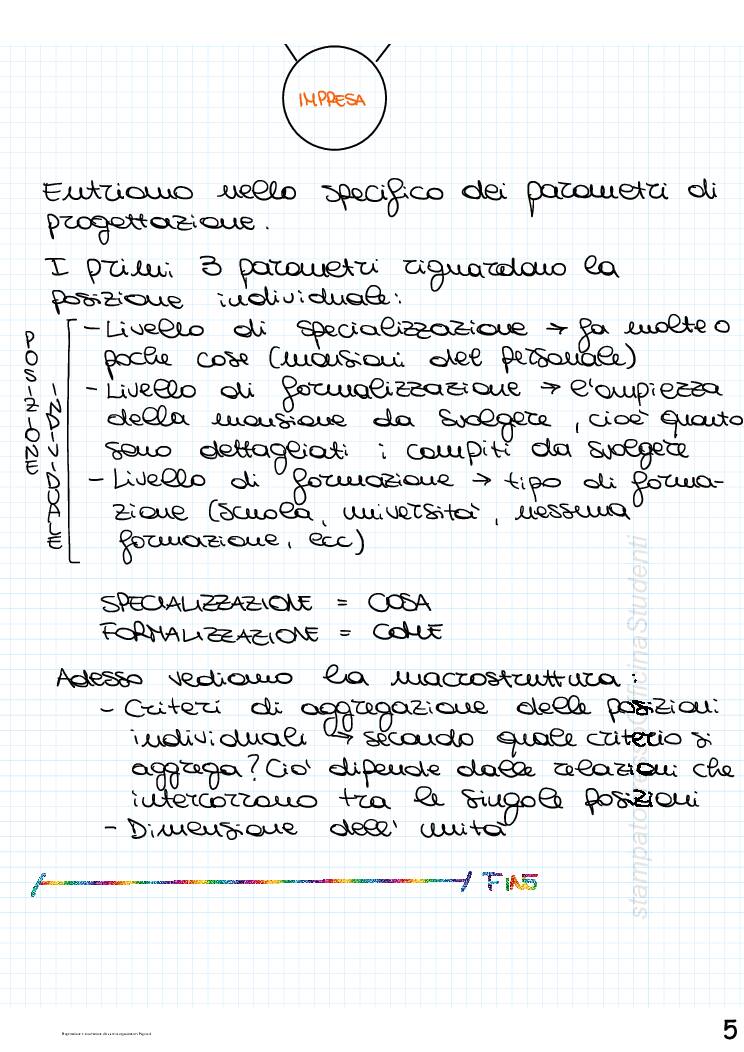 IMPRESA
Entriamo nello specifico dei parametri di
progettazione.
I primi 3 parametri riguardano la
posizione individuale:
POSIZIONE
INDIVIDUALE
- Livello di specializzazione → fa molte o
poche cose (mansioni del personale)
- Livello di formalizzazione → l'ampiezza
della mansione da svolgere, cioè quanto
sono dettagliati i compiti da svolgere
- Livello di formazione → tipo di forma-
zione (scuola, università, nessuna
formazione, ecc)
SPECIALIZZAZIONE = COSA
FORMALIZZAZIONE = COME
Adesso vediamo la macrostruttura:
- Criteri di aggregazione delle posizioni
individuali ↳ secondo quale criterio si
aggrega? Ciò dipende dalle relazioni che
intercorrono tra le singole posizioni
- Dimensione dell'unità
FINS
5